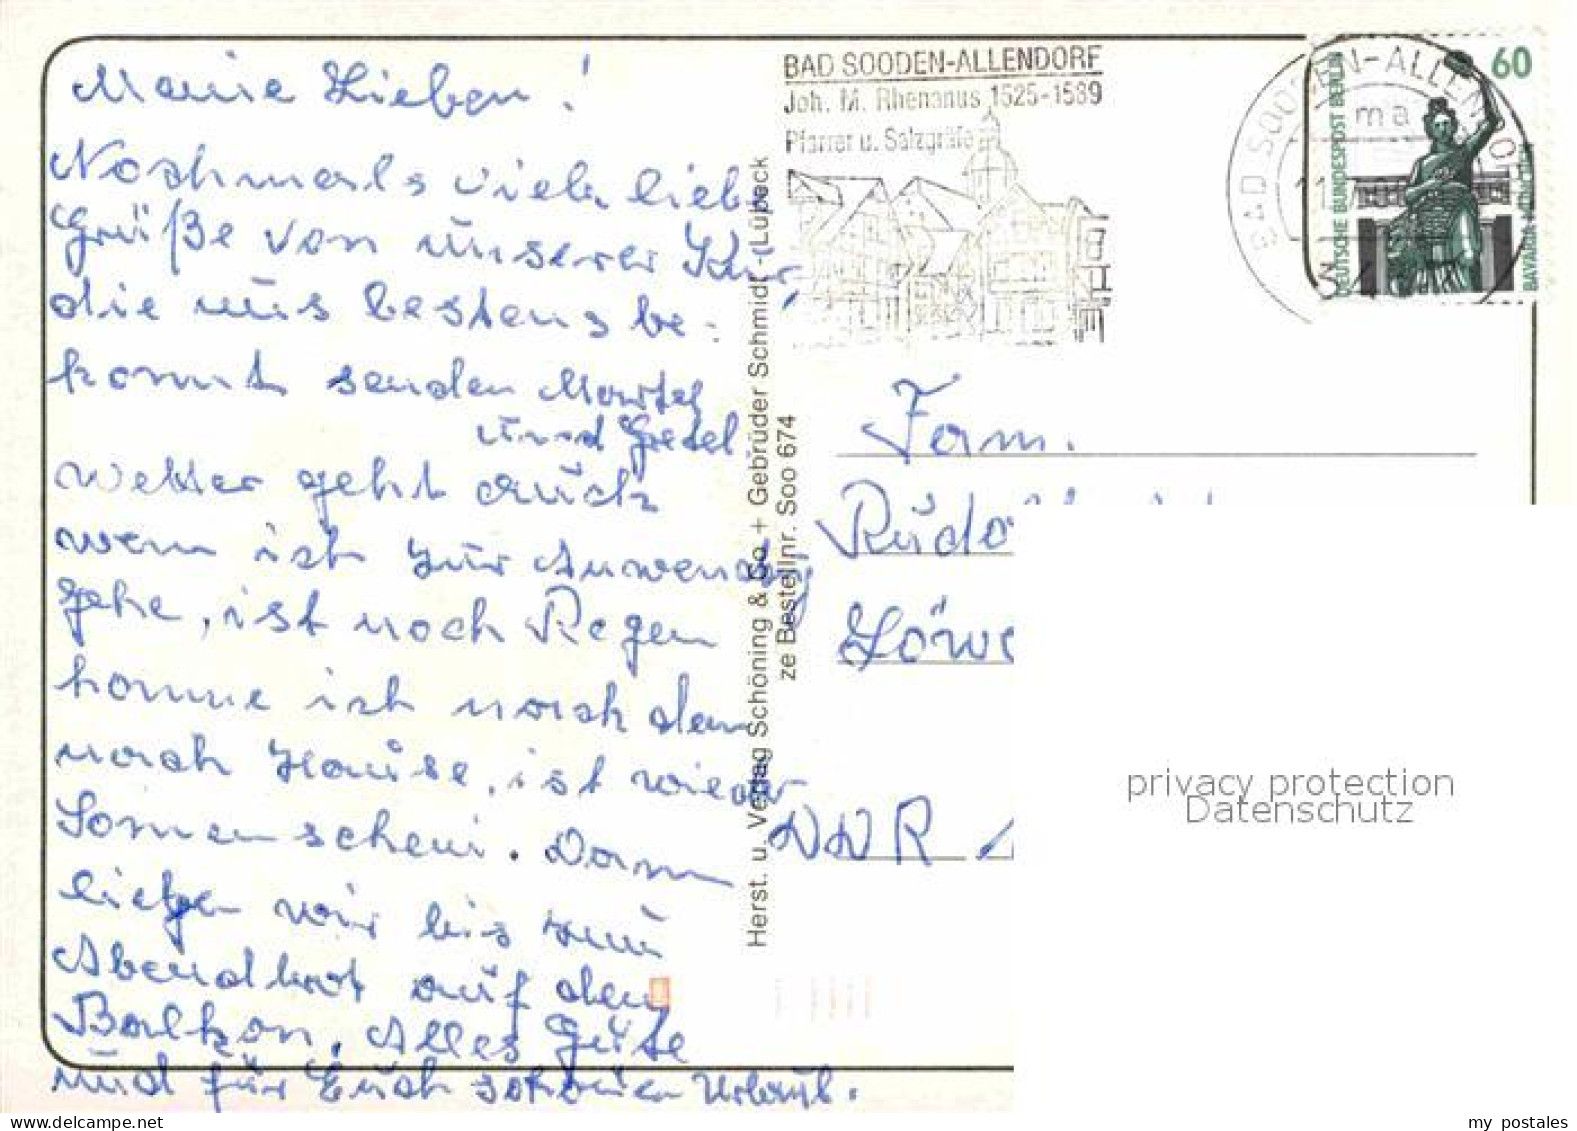 Meine Lieben!
Nochmals viele liebe
Grüße von unserer Kur,
die uns bestens be-
kommt senden
und Gretel
Wetter geht auch
wenn ich zur Anwendg
gehe, ist noch Regen
komme ich nach dem
nach Hause, ist wieder
Sonnenschein. Dann
liegen wir bis zum
Abendbrot auf dem
Balkon. Alles Gute
und für Euch schönen Urlaub.
Herst. u. Verlag Schöning & Co + Gebrüder Schmidt -Lübeck
ze Bestellnr. Soo 674
BAD SOODEN-ALLENDORF
Joh. M. Rhenanus 1525-1589
Pfarrer u. Salzgräfe
BAD SOODEN-ALLENDO
ma
60
DEUTSCHE BUNDESPOST BERLIN
BAVARIA MÜNCHEN
Fam.
DDR
privacy protection
Datenschutz
my postales
www.delcampe.net